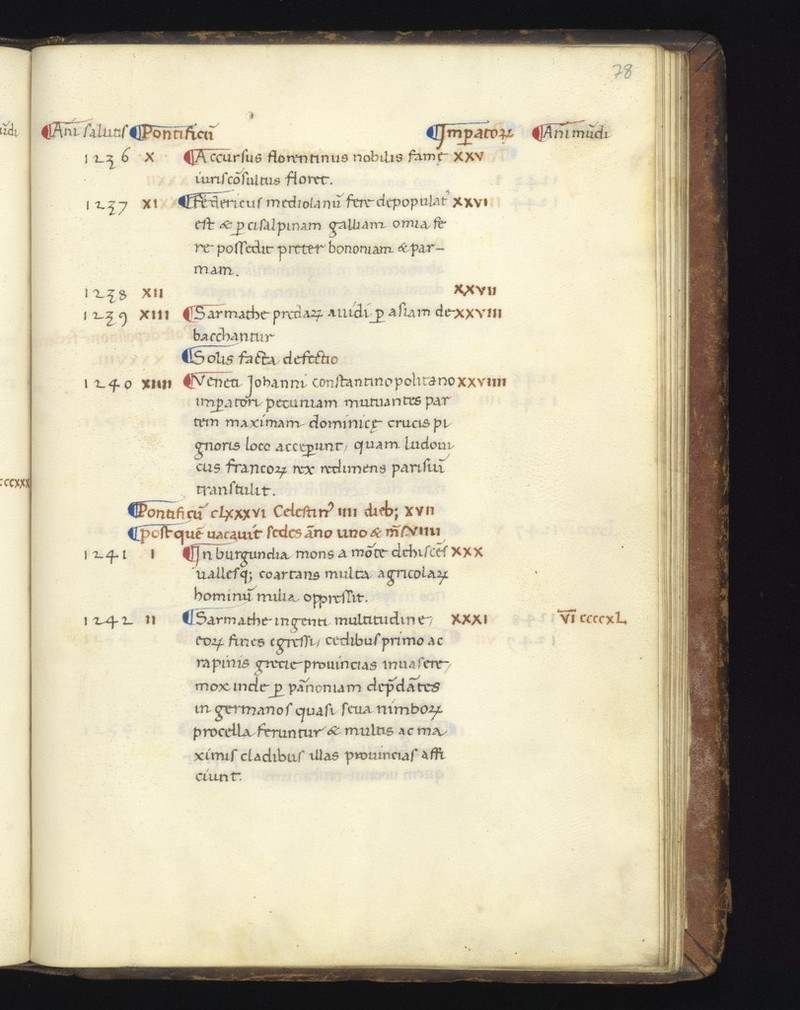 78
Ani salutis Pontificū Imperatoꝝ Ani mūdi
1236 X Accursus florentinus nobilis famę XXV
iuriscōsultus floret.
1237 XI Federicus mediolanū fere depopulat᾽ XXVI
est & ꝑ cisalpinam galliam omīa fe
re possedit preter bononiam & par-
mam.
1238 XII XXVII
1239 XIII Sarmathe predaꝝ auidi ꝑ asiam de XXVIII
bacchantur
Solis facta defectio
1240 XIIII Veneti Johanni constantinopolitano XXVIIII
imꝑatori pecuniam mutuantes par
tem maximam dominicę crucis pi
gnoris loco acceꝑunt, quam ludoui
cus francoꝝ rex redimens parisiū
transtulit.
Pontificū clxxxvi Celestin᾽ IIII dieb; XVII
post quē uacauit sedes āno uno & m̄s VIIII
1241 I In burgundia mons a mōte dehiscēs XXX
uallesq; coartans multa agricolaꝝ
hominū milia oppressit.
1242 II Sarmathe ingenti multitudine XXXI VI ccccxL
eoꝝ fines egressi, cedibus primo ac
rapinis grecie prouincias inuasere,
mox inde ꝑ pānoniam dep̄dātes
in germanos quasi seua nimboꝝ
procella feruntur & multis ac ma
ximis cladibus illas prouincias affi
ciunt.
cccxxx